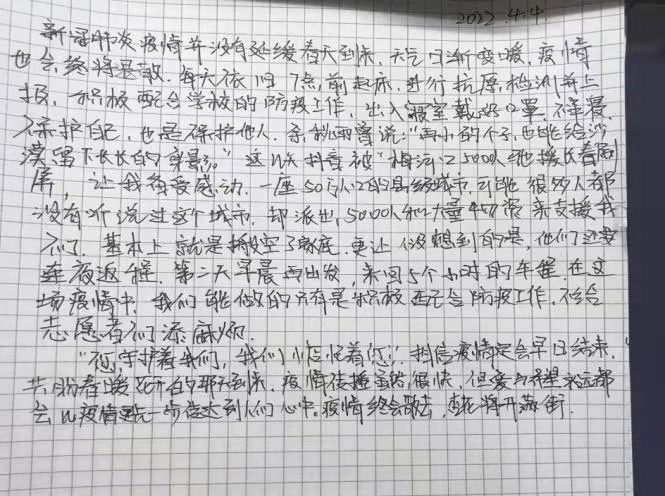 2022.4.4.
新冠肺炎疫情并没有延缓春天到来,天气日渐变暖,疫情
也会终将退散.每天依旧7点前起床,进行抗原检测并上
报,积极配合学校的防疫工作,出入寝室戴好口罩,不幸
保护自己,也是保护他人.余秋雨曾说:"再小的个子,也能给沙
漠留下长长的身影."这几天抖音被"梅河口5000人驰援长春"刷
屏,让我很受感动.一座50万人口的县级城市,可能很多人都
没有听说过这个城市,却派出5000人和大量物资来支援我
们,基本上就是掏空了家底.更让人没想到的是,他们还要
连夜返程,第二天早晨再出发,来回5个小时的车程.在这
场疫情中,我们能做的只有是积极配合防疫工作,不给
志愿者们添麻烦.
"您守护着我们,我们惦记着您".相信疫情定会早日结束,
共盼春暖花开的那天到来,疫情传播虽然很快,但爱与希望永远都
会比疫情更先一步传达到人们心中.疫情终会散去,杏花将开满街.